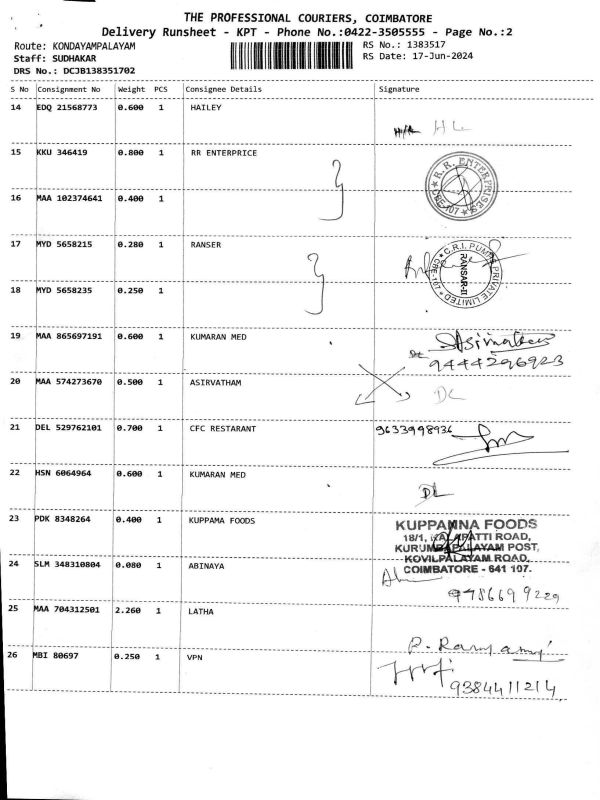 THE PROFESSIONAL COURIERS, COIMBATORE
Delivery Runsheet - KPT - Phone No.:0422-3505555 - Page No.:2
Route: KONDAYAMPALAYAM RS No.: 1383517
Staff: SUDHAKAR RS Date: 17-Jun-2024
DRS No.: DCJB138351702
S No Consignment No Weight PCS Consignee Details Signature
14 EDQ 21568773 0.600 1 HAILEY
15 KKU 346419 0.800 1 RR ENTERPRICE
R.R. ENTERPRISES
CBE-107
16 MAA 102374641 0.400 1
17 MYD 5658215 0.280 1 RANSER
C.R.I. PUMPS PRIVATE LIMITED
RANSAR-II
CBE-107
18 MYD 5658235 0.250 1
19 MAA 865697191 0.600 1 KUMARAN MED
9444296923
20 MAA 574273670 0.500 1 ASIRVATHAM DL
21 DEL 529762101 0.700 1 CFC RESTARANT 9633998936
22 HSN 6064964 0.600 1 KUMARAN MED DL
23 PDK 8348264 0.400 1 KUPPAMA FOODS
KUPPANNA FOODS
18/1, KALAPATTI ROAD,
KURUMBAPALAYAM POST,
KOVILPALAYAM ROAD,
COIMBATORE - 641 107.
24 SLM 348310804 0.080 1 ABINAYA
9786699229
25 MAA 704312501 2.260 1 LATHA
P. Ramyamy
26 MBI 80697 0.250 1 VPN
9384411214